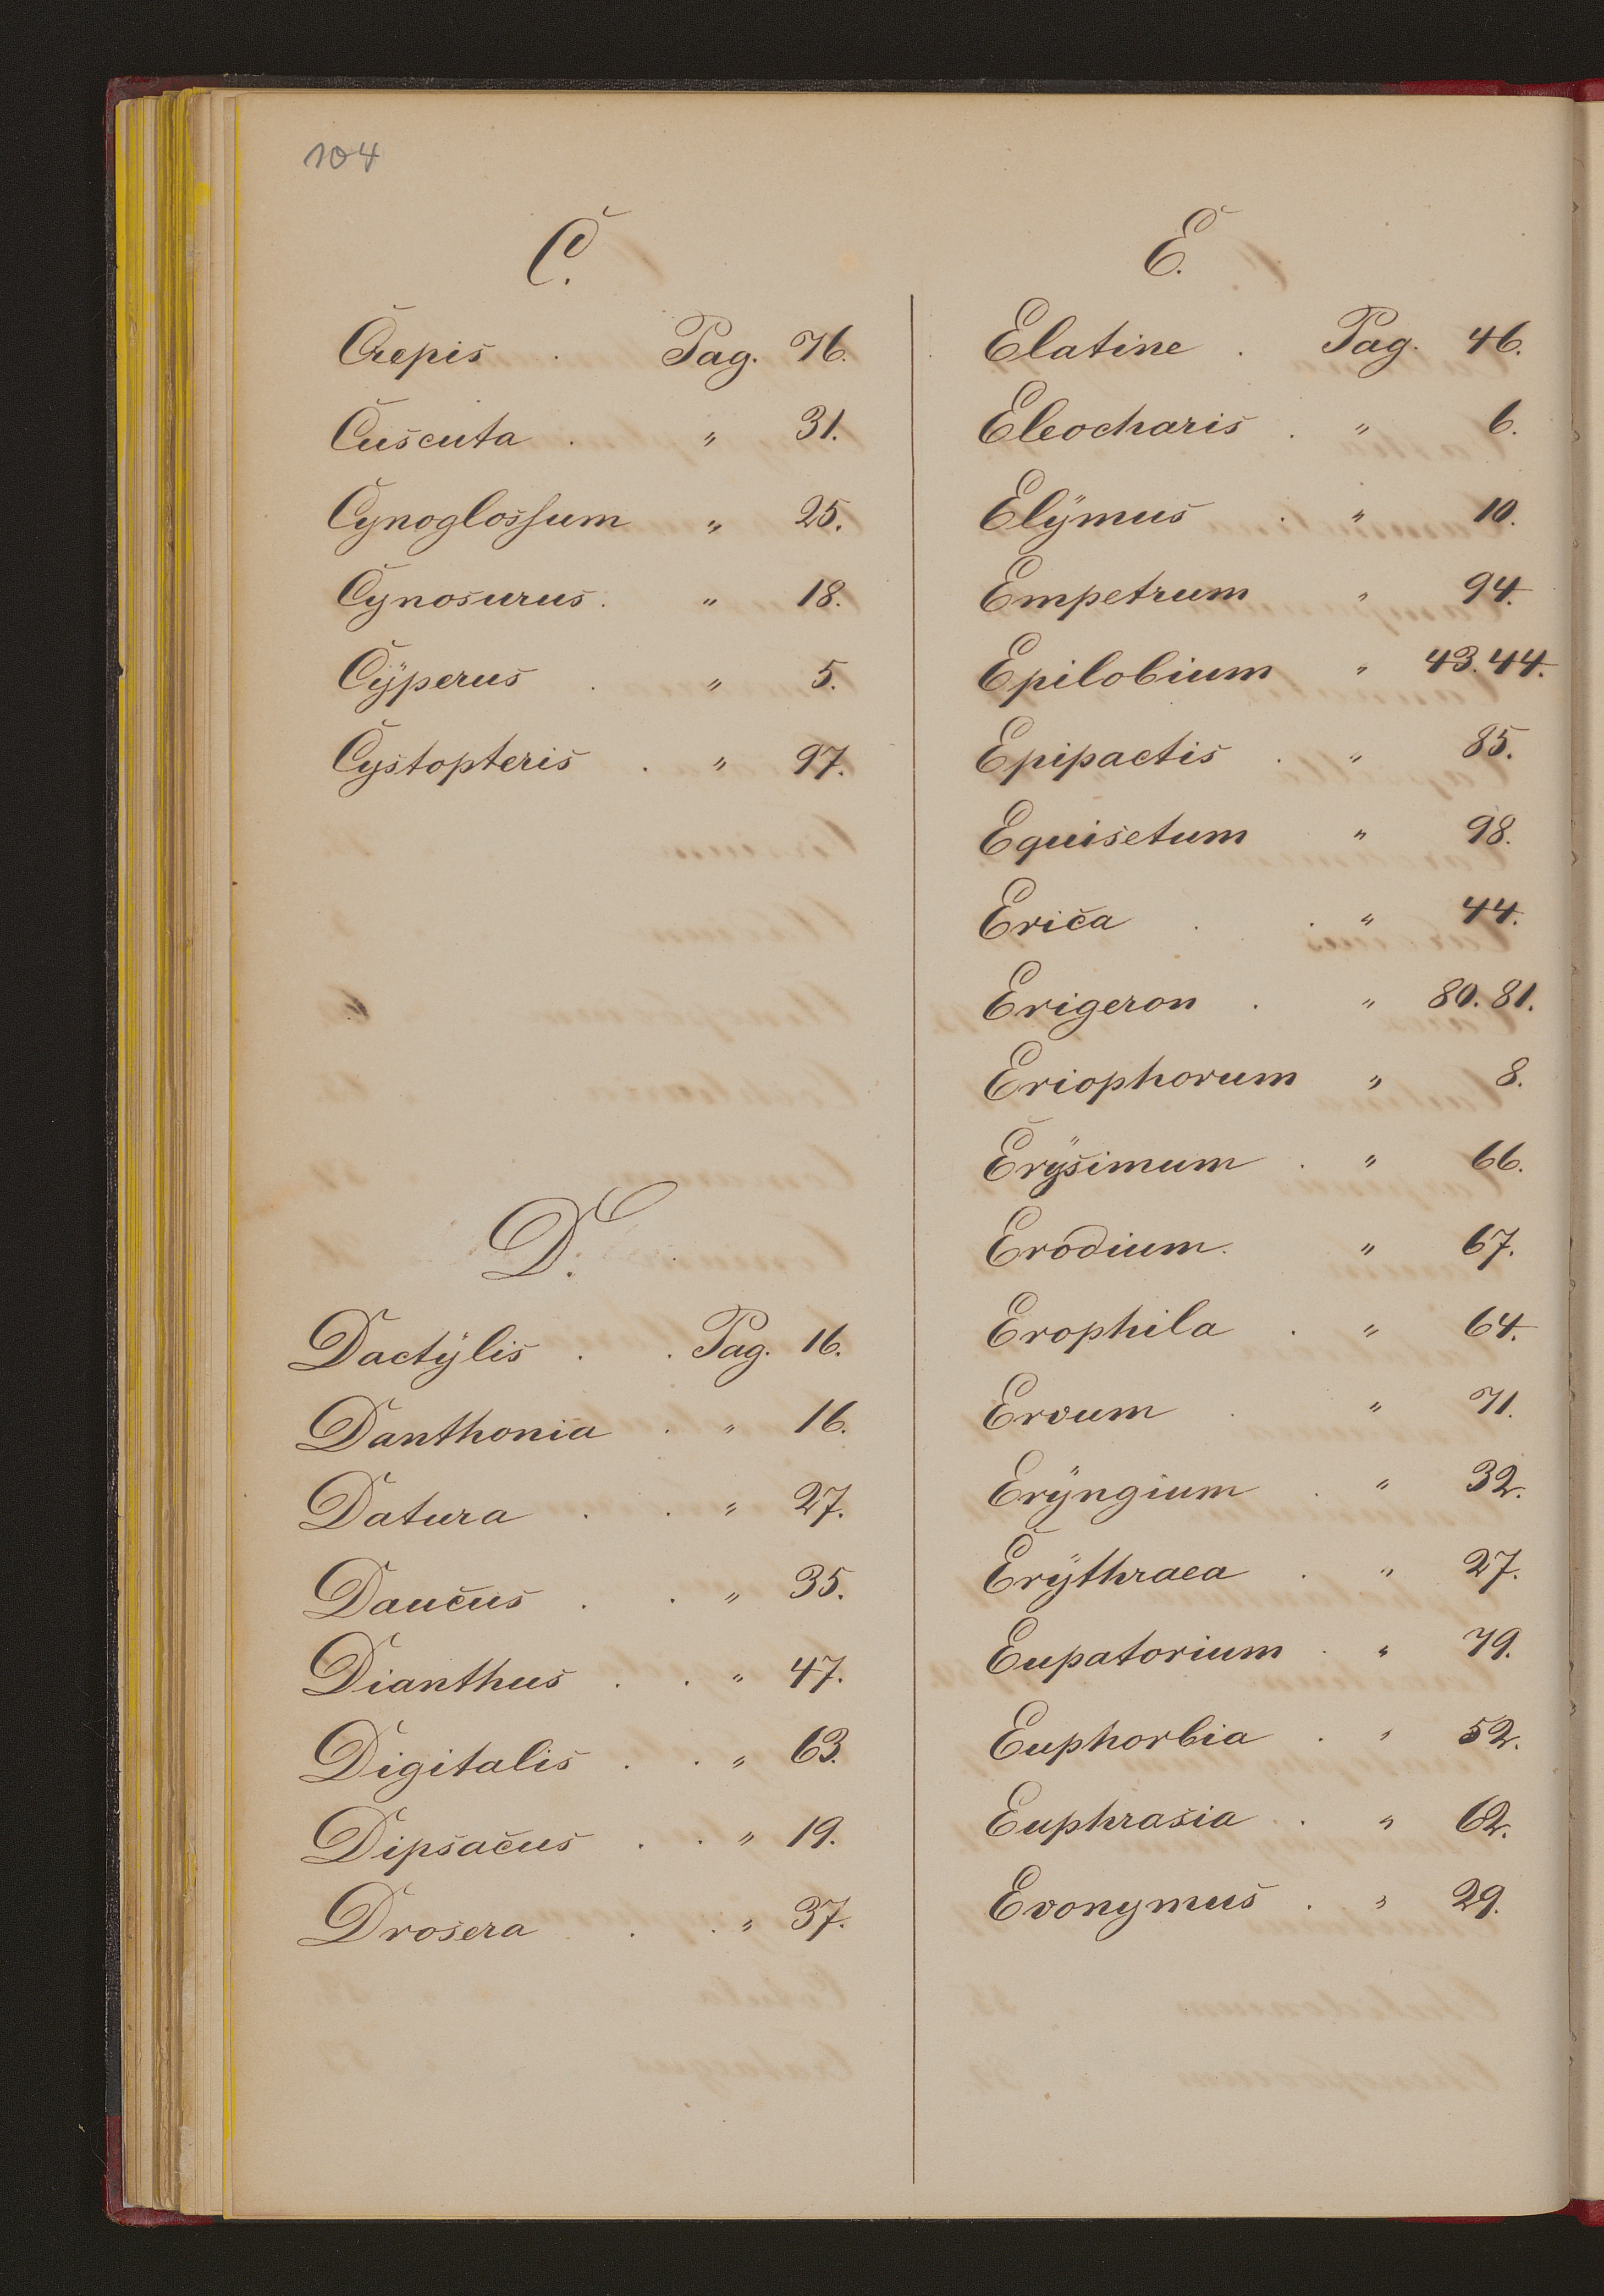 104
C.
Crepis . Pag. 76.
Cuscuta . " 31.
Cynoglossum " 25.
Cynosurus . " 18.
Cÿperus . " 5.
Cystopteris . " 97.
D.
Dactÿlis . . Pag. 16.
Danthonia . " 16.
Datura . . " 27.
Daucus . . " 35.
Dianthus . . " 47.
Digitalis . . " 63.
Dipsacus . . " 19.
Drosera . . " 37.
E.
Elatine . Pag. 46.
Eleocharis . " 6.
Elÿmus . " 10.
Empetrum " 94.
Epilobium " 43. 44.
Epipactis . " 85.
Equisetum " 98.
Erica . . " 44.
Erigeron . " 80. 81.
Eriophorum " 8.
Erÿsimum . " 66.
Erodium . " 67.
Erophila . " 64.
Ervum . " 71.
Erÿngium . " 32.
Erÿthraea . " 27.
Eupatorium . " 79.
Euphorbia . " 52.
Euphrasia . " 62.
Evonymus . " 29.